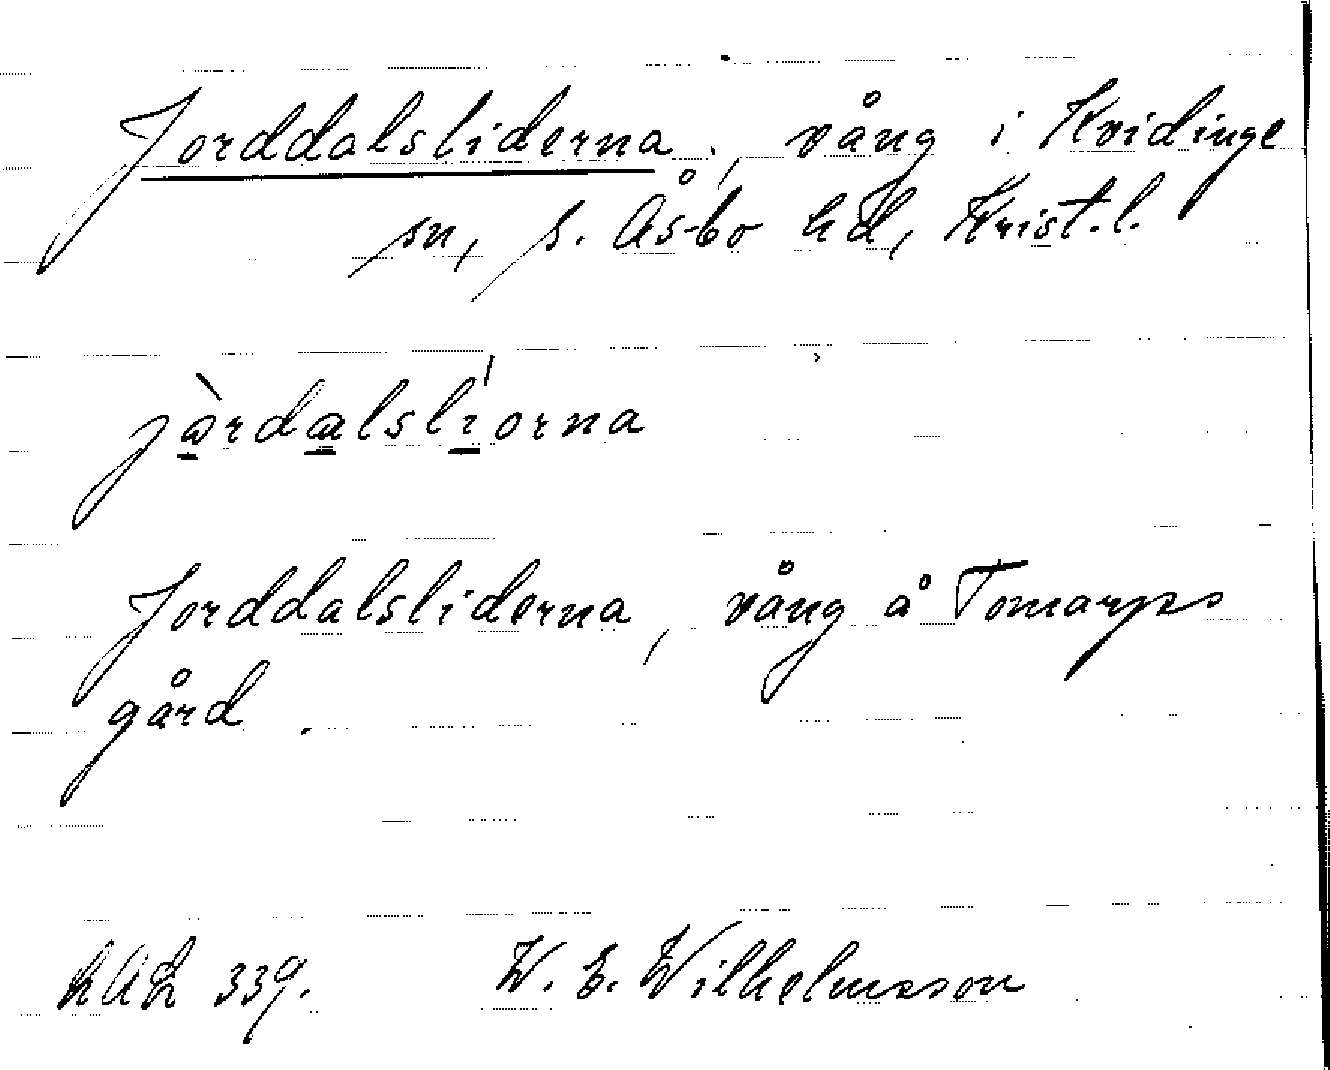 Jorddalsliderna, vång i Kvidinge
sn, s. Åsbo hd, Krist.l.
jòrdalslíorna
Jorddalsliderna, vång å Tomarps
gård.
LAL 339. W. E. Wilhelmsson